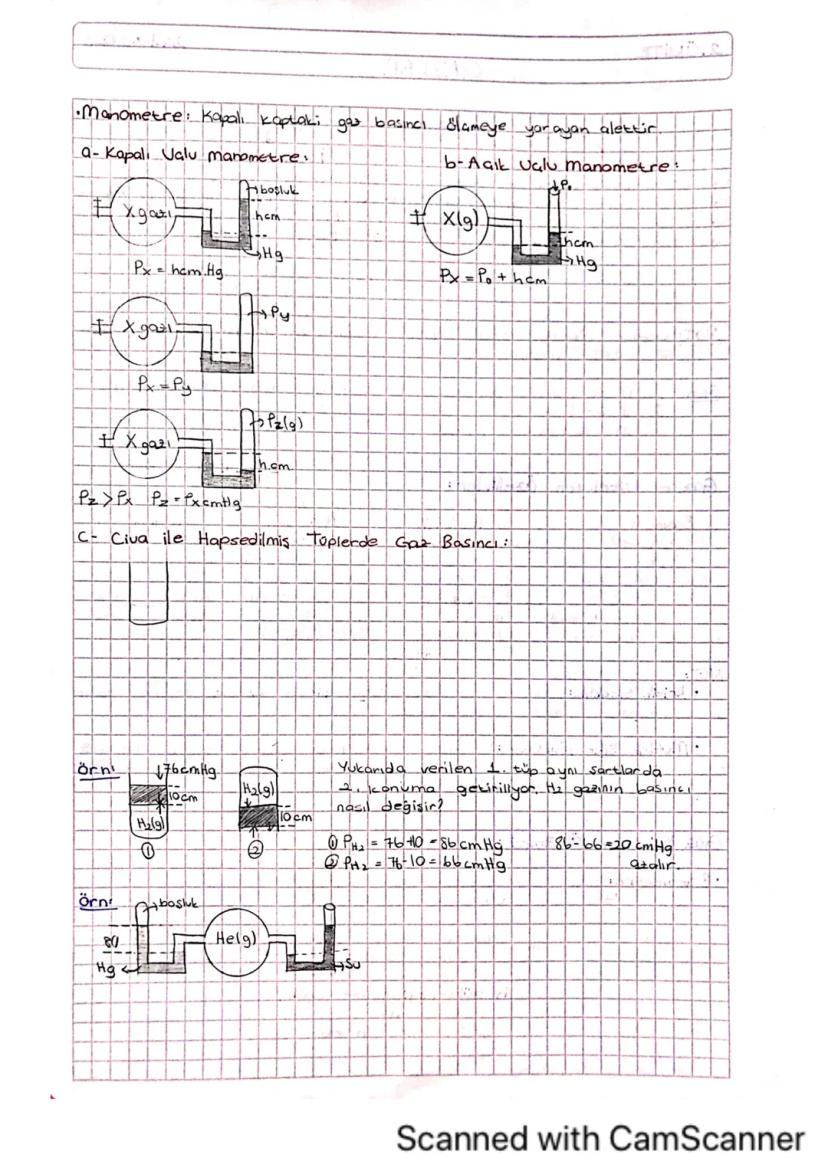 •Manometre: Kapalı kaptaki gaz basıncı ölçmeye yarayan alettir.
a- Kapalı Uçlu manometre:
b- Açık Uçlu Manometre:
boşluk
X gazı
h cm
Hg
Px = hcm.Hg
P₀
X(g)
hcm
Hg
Px = P₀ + h cm
X gazı
Py
Px = Py
X gazı
Pz(g)
h.cm
Pz > Px Pz = Px cmHg
C- Civa ile Hapsedilmiş Tüplerde Gaz Basıncı:
Örn:
76cmHg
10cm
H₂(g)
①
H₂(g)
10cm
②
Yukarıda verilen 1. tüp aynı şartlarda
2. konuma getiriliyor. H₂ gazının basıncı
nasıl değişir?
① PH₂ = 76+10 = 86 cm Hg
② PH₂ = 76-10 = 66 cmHg
86-66=20 cmHg
azalır.
Örn:
boşluk
80
Hg
He(g)
Su
Scanned with CamScanner